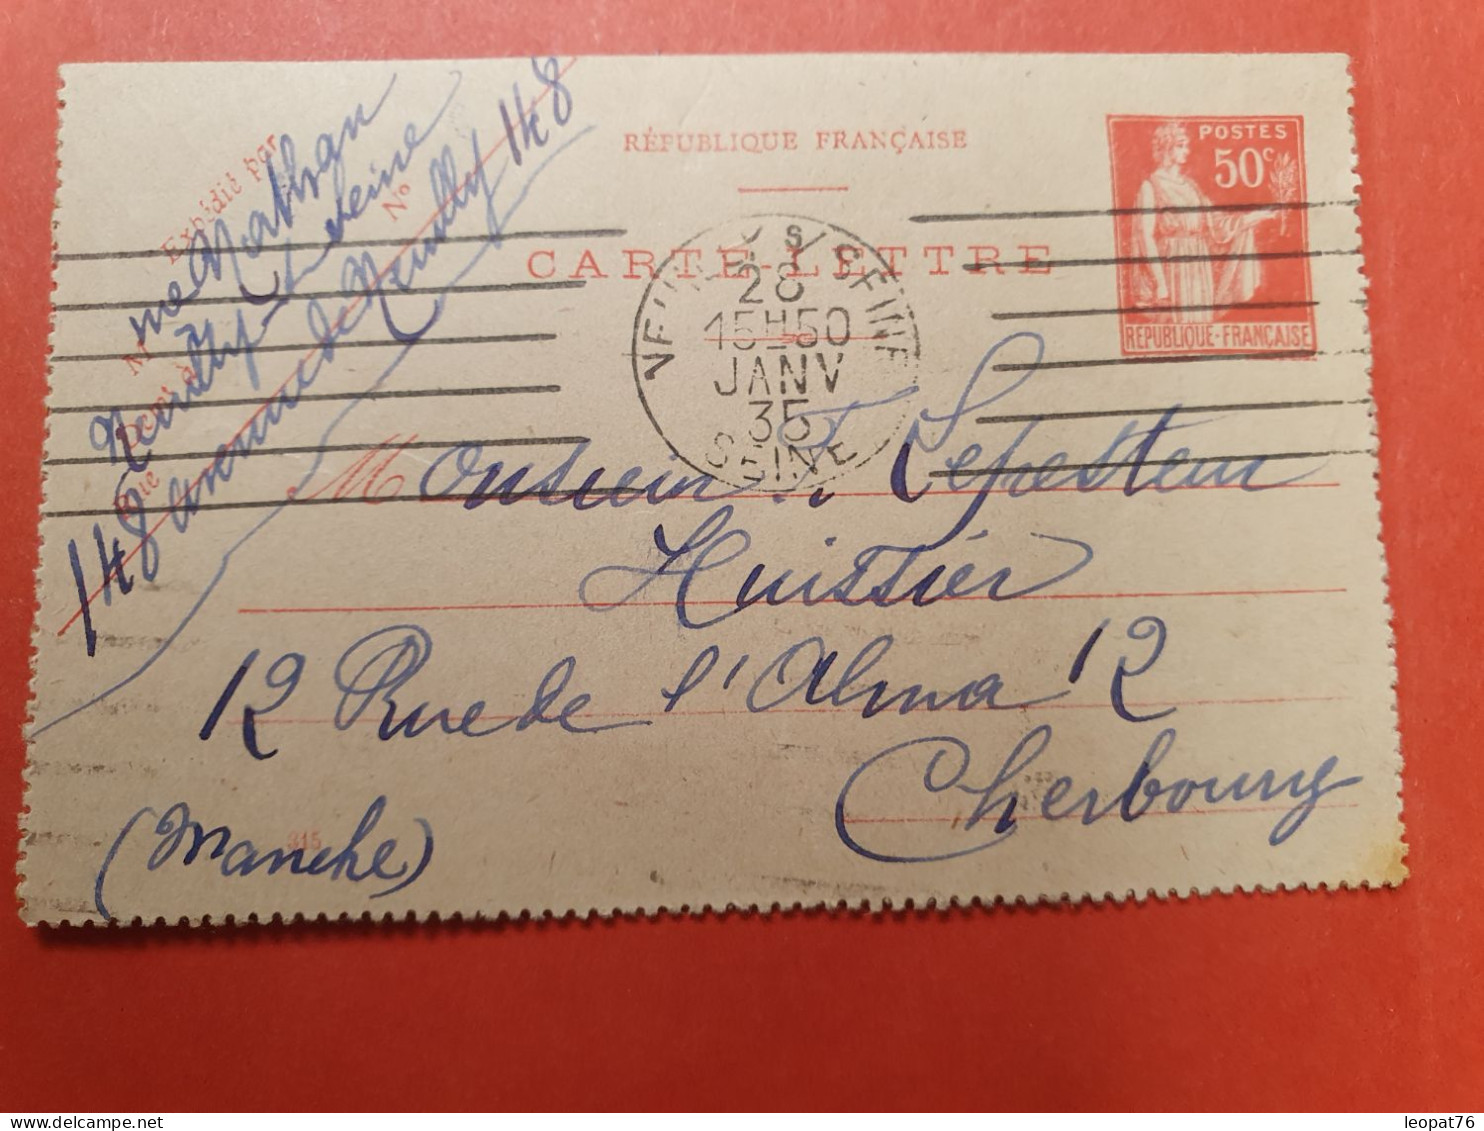 RÉPUBLIQUE FRANÇAISE
POSTES
50c
RÉPUBLIQUE-FRANÇAISE
CARTE-LETTRE
Expédié par
Mme Nathan
Neuilly s/ Seine
No
148 avenue de Neuilly 148
S/SEINE
28
15H50
JANV
35
SEINE
Monsieur Lepesteur
Huissier
12 Rue de l'Alma 12
Cherbourg
(Manche)
315
leopat76